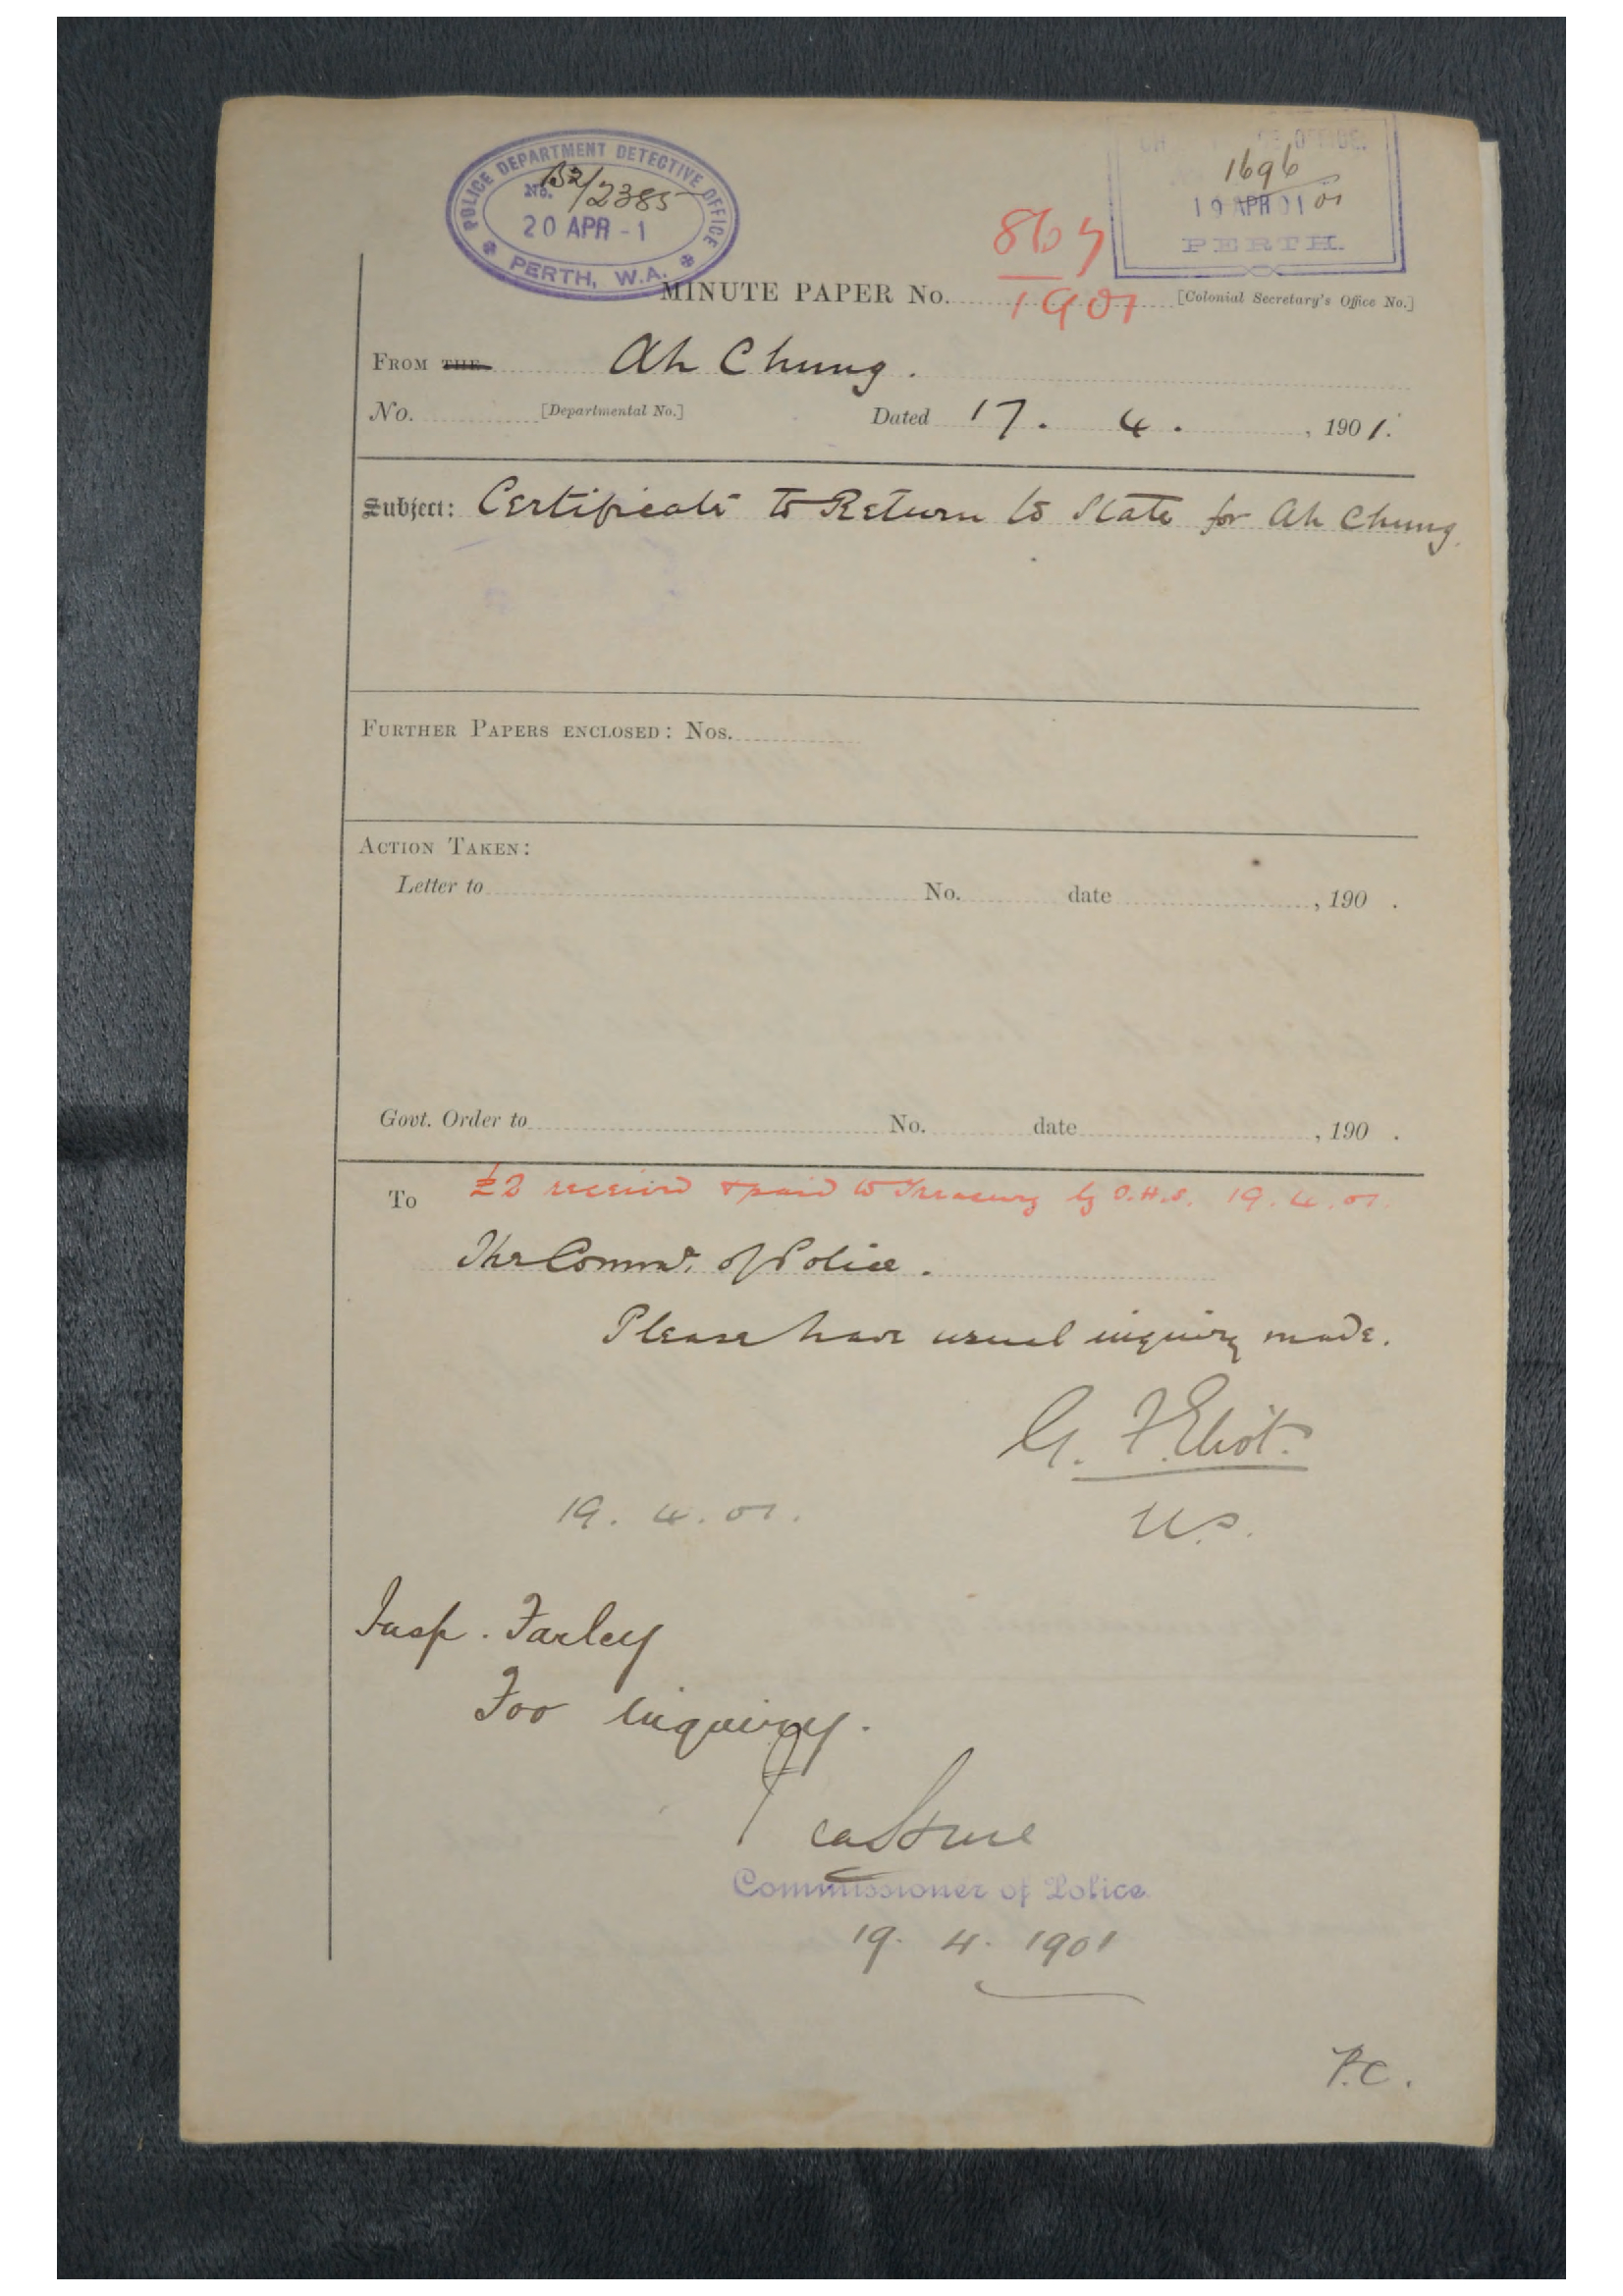 POLICE DEPARTMENT DETECTIVE OFFICE
No. B2/2385
20 APR - 1
PERTH, W.A.
OFFICE.
1696
19 APR 01 01
PERTH.
867
1901
MINUTE PAPER No. [Colonial Secretary's Office No.]
FROM THE Ah Chung.
No. [Departmental No.] Dated 17. 4. , 1901.
Subject: Certificate to Return to State for Ah Chung.
FURTHER PAPERS ENCLOSED: Nos.
ACTION TAKEN:
Letter to No. date , 190 .
Govt. Order to No. date , 190 .
To £2 received & paid to Treasury by O.H.S. 19.4.01.
The Commr. of Police.
Please have usual inquiry made.
G. F. Eliot.
19. 4. 01. U.S.
Insp. Farley
For inquiry.
Commissioner of Police
19. 4. 1901
P.C.